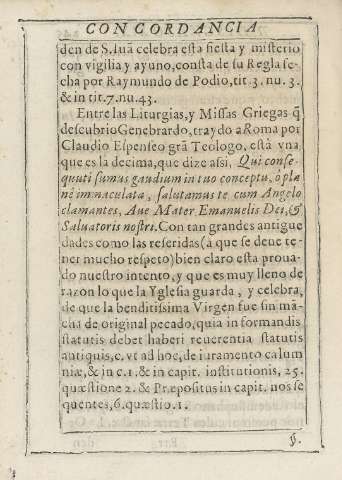 CONCORDANCIA
den de S. Iuã celebra esta fiesta y misterio
con vigilia y ayuno, consta de su Regla fe-
cha por Raymundo de Podio, tit. 3. nu. 3.
& in tit. 7. nu. 43.
Entre las Liturgias, y Missas Griegas q̃
descubrio Genebrardo, traydo a Roma por
Claudio Espenseo grã Teòlogo, està vna
que es la decima, que dize assi, Qui conse-
quuti sumus gaudium in tuo conceptu, ò ple
nè immaculata, salutamus te cum Angelo
clamantes, Aue Mater Emanuelis Dei, &
Saluatoris nostri. Con tan grandes antigue
dades como las referidas (à que se deue te-
ner mucho respeto) bien claro esta proua-
do nuestro intento, y que es muy lleno de
razon lo que la Yglesia guarda, y celebra,
de que la benditissima Virgen fue sin mã-
cha de original pecado, quia in formandis
statutis debet haberi reuerentia statutis
antiquis, c. vt ad hoc, de iuramento calum
niæ, & in c. 1. & in capit. institutionis, 25.
quæstione 2. & Præpositus in capit. nos se
quentes, 6. quæstio. 1.
§.